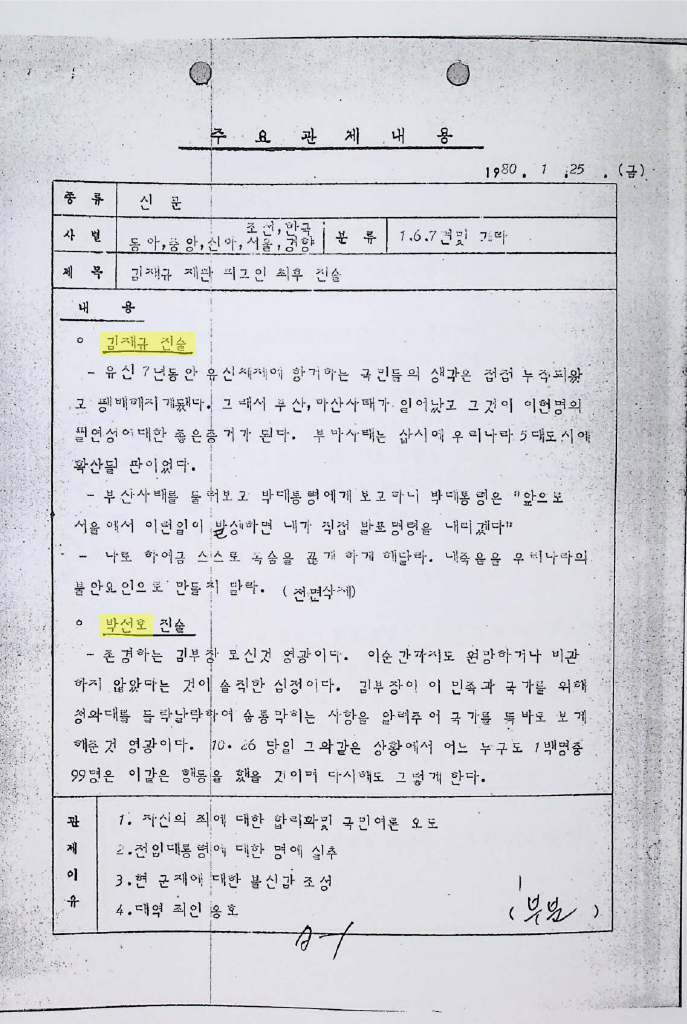 주 요 관 제 내 용
1980. 1. 25. (금)
종 류 신 문
사 별 조선,한국 동아,중앙,신아,서울,경향 분 류 1.6.7면및
제 목 김재규 재판 피고인 최후 진술
내 용
○ 김재규 진술
- 유신 7년동안 유신체제에 항거하는 국민들의 생각은 점점 누적되왔
고 팽배해지게됐다. 그래서 부산,마산사태가 일어났고 그것이 이혁명의
필연성에대한 좋은증거가 된다. 부마사태는 삽시에 우리나라 5대도시에
확산될 판이었다.
- 부산사태를 둘러보고 박대통령에게 보고하니 박대통령은 "앞으로
서울에서 이런일이 발생하면 내가 직접 발포명령을 내리겠다"
- 나로 하여금 스스로 목숨을 끊게 하게 해달라. 내죽음을 우리나라의
불안요인으로 만들지 말라. (전면삭제)
○ 박선호 진술
- 존경하는 김부장 모신것 영광이다. 이순간까지도 원망하거나 비관
하지 않았다는 것이 솔직한 심정이다. 김부장이 이 민족과 국가를 위해
청와대를 들락날락하여 숨통막히는 사항을 알려주어 국가를 똑바로 보게
해준것 영광이다. 10.26 당일 그와같은 상황에서 어느 누구도 1백명중
99명은 이같은 행동을 했을 것이며 다시해도 그렇게 한다.
관 제 이 유
1. 자신의 죄에 대한 합리화및 국민여론 오도
2.전임대통령에 대한 명예 실추
3.현 군재에 대한 불신감 조성
4.대역 죄인 옹호
(부분)
A-1